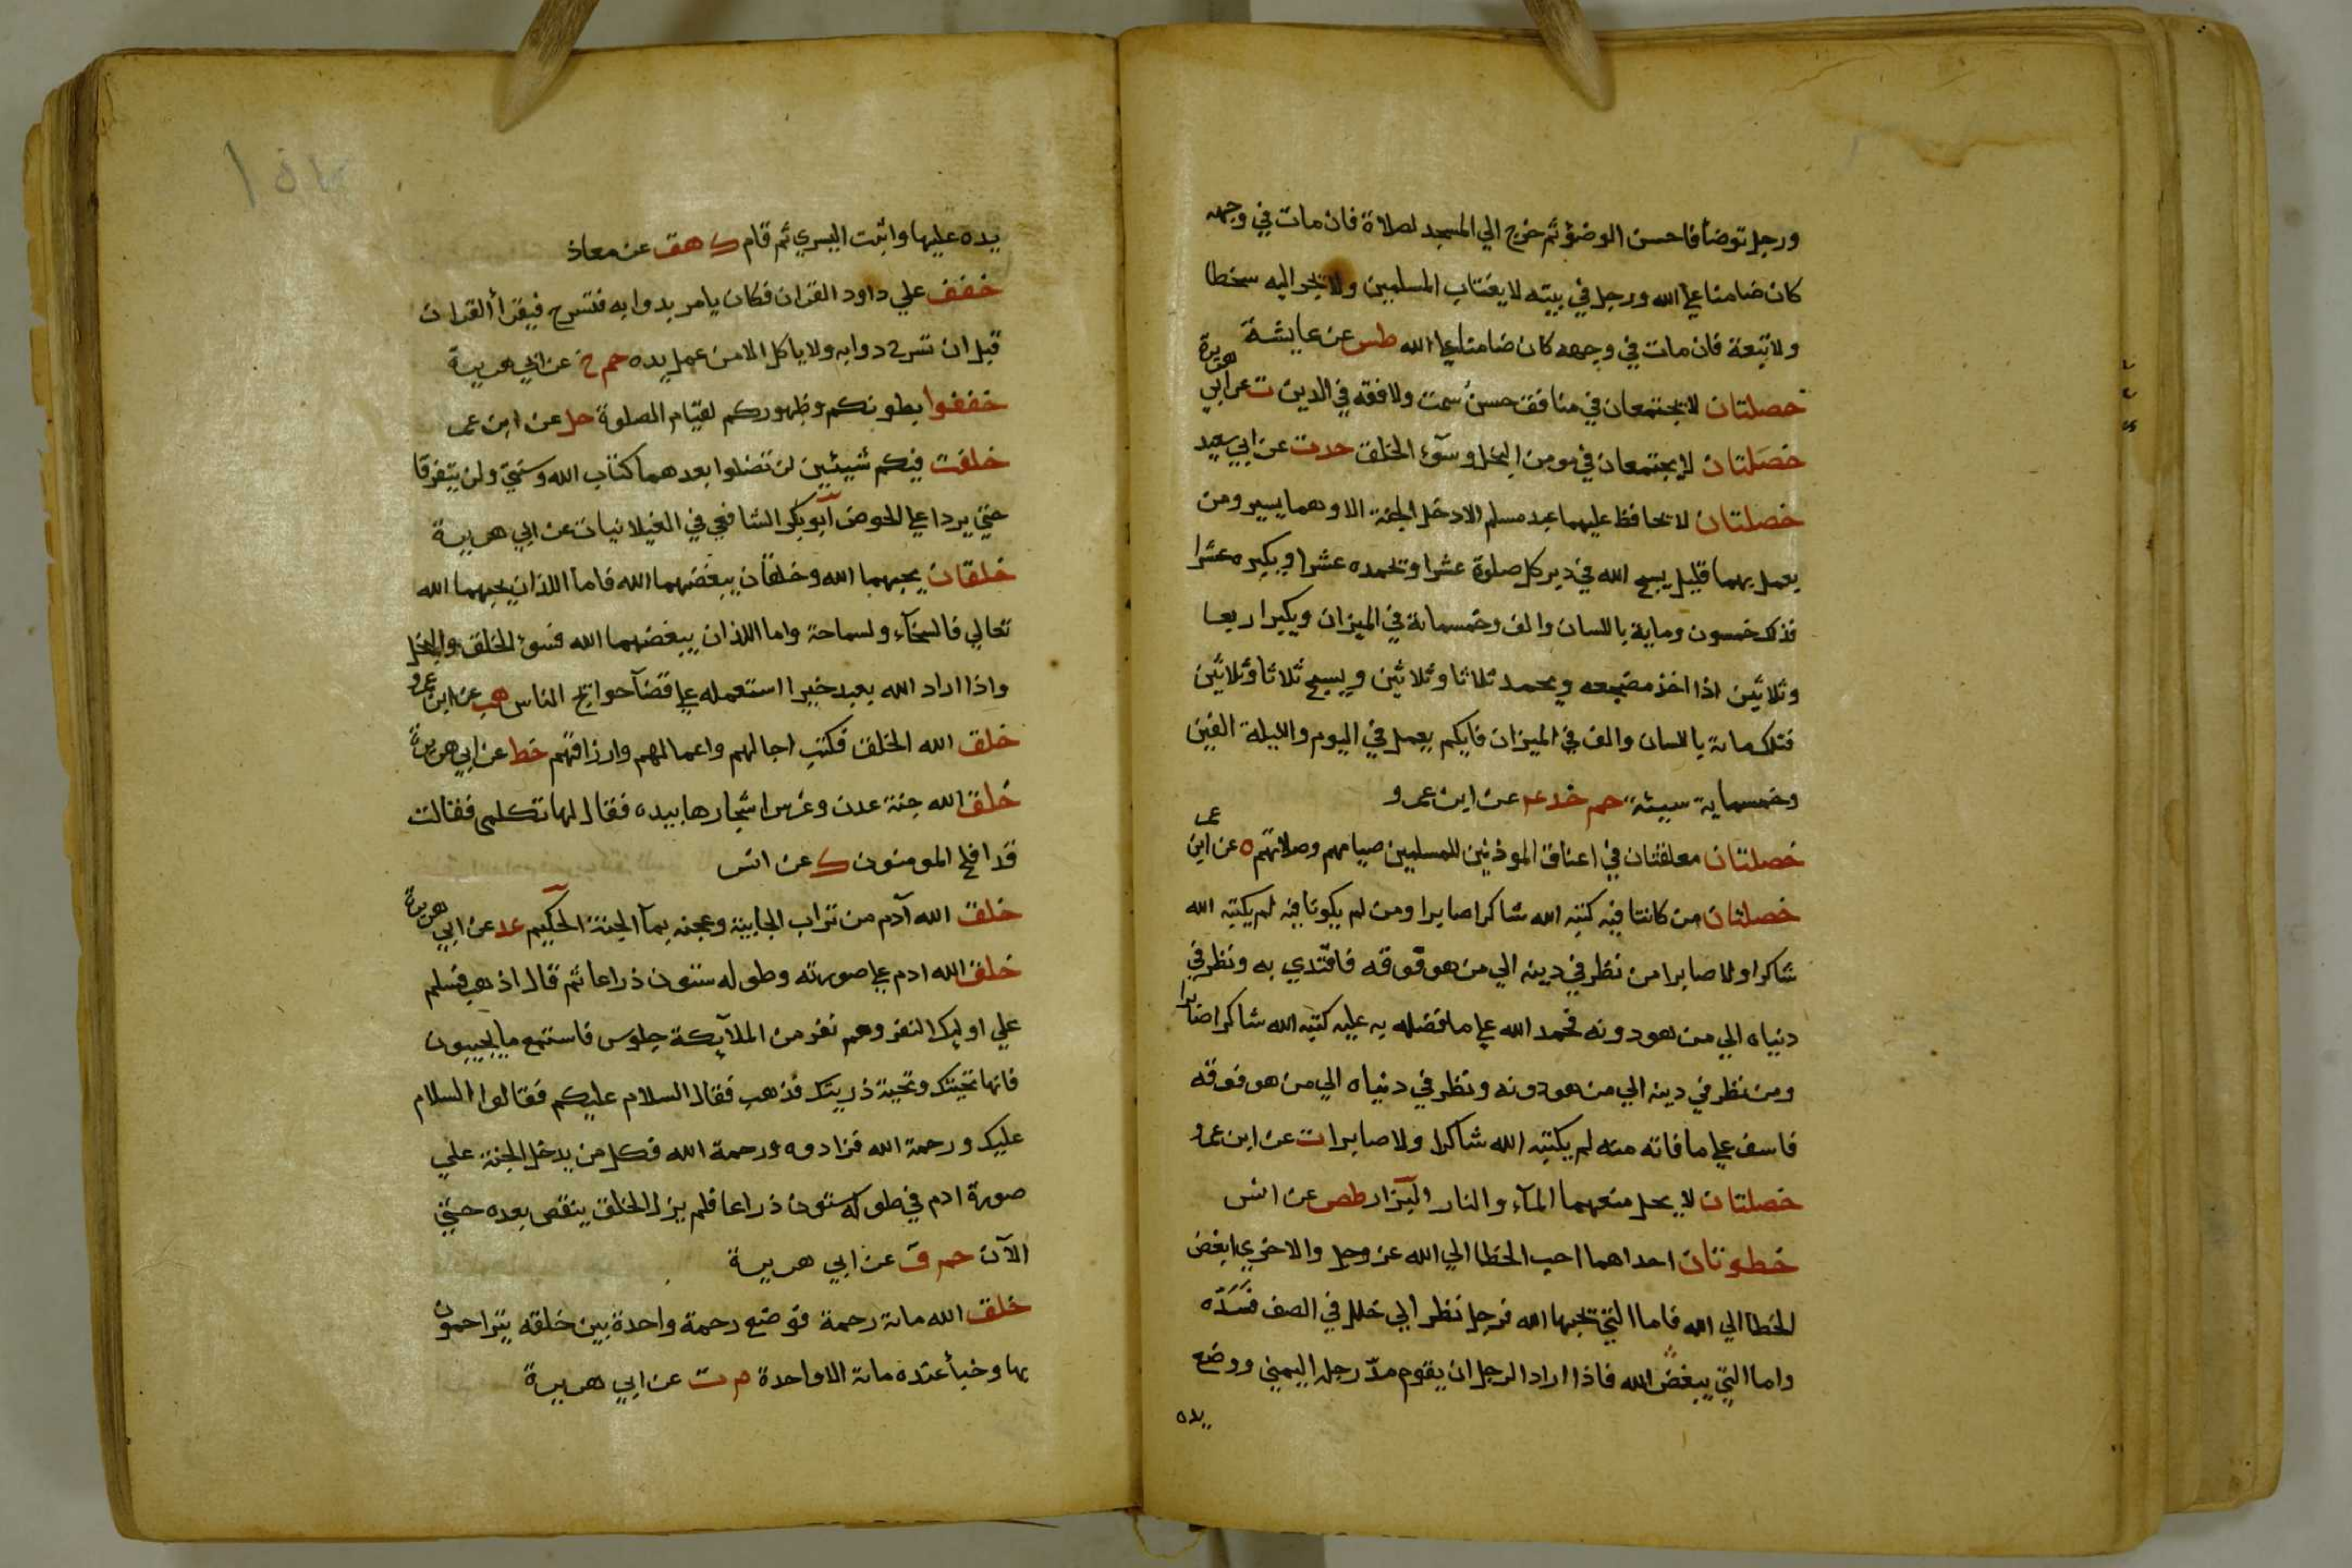 ورجل توضأ فاحسن الوضؤ ثم خرج الي المسجد لصلاة فان مات في وجهه
كان ضامنا علي الله ورجل في بيته لا يغتاب المسلمين ولا يجر اليه سخطا
ولا تبعة فان مات في وجهه كان ضامنا علي الله طس عن عايشة
خصلتان لا يجتمعان في منافق حسن سمت ولا فقه في الدين ت عن ابي هريرة
خصلتان لا يجتمعان في مومن البخل وسوء الخلق خد ت عن ابي سعيد
خصلتان لا يحافظ عليهما عبد مسلم الا دخل الجنة الا وهما يسير ومن
يعمل بهما قليل يسبح الله في دبر كل صلوة عشرا وتحمده عشرا ويكبره عشرا
فذلك خمسون وماية باللسان والف وخمسمائة في الميزان ويكبر اربعا
وثلاثين اذا اخذ مضجعه ويحمد ثلاثا وثلاثين ويسبح ثلاثا وثلاثين
فتلك مائة باللسان والف في الميزان فايكم يعمل في اليوم والليلة الفين
وخمسماية سيئة حم خد عه عن ابن عمرو
خصلتان معلقتان في اعناق الموذنين للمسلمين صيامهم وصلاتهم ه عن ابن عمر
خصلتان من كانتا فيه كتبه الله شاكرا صابرا ومن لم يكونا فيه لم يكتبه الله
شاكرا ولا صابرا من نظر في دينه الي من هو فوقه فاقتدي به ونظر في
دنياه الي من هو دونه فحمد الله علي ما فضله به عليه كتبه الله شاكرا صابرا
ومن نظر في دينه الي من هو دونه ونظر في دنياه الي من هو فوقه
فاسف علي ما فاته منه لم يكتبه الله شاكرا ولا صابرا ت عن ابن عمرو
خصلتان لا يحل منعهما المآء والنار البزار طص عن انس
خطوتان احداهما احب الخطا الي الله عز وجل والاخري ابغض
الخطا الي الله فاما التي تحبها الله فرجل نظر الي خلل في الصف فَسَدّه
واما التي يبغض الله فاذا اراد الرجل ان يقوم مدّ رجله اليمني ووضع
يده
يده عليها واثبت اليسري ثم قام ك هق عن معاذ
خفف علي داود القران فكان يامر بدوابه فتسرج فيقرأ القران
قبل ان تسرج دوابه ولا ياكل الا من عمل يده حم خ عن ابي هريرة
خففوا بطونكم وظهوركم لقيام الصلوة حل عن ابن عمر
خلفت فيكم شيئين لن تضلوا بعدهما كتاب الله وسنتي ولن يتفرقا
حتي يردا علي الحوض ابو بكر الشافعي في الغيلانيات عن ابي هريرة
خلقان يحبهما الله وخلقان يبغضهما الله فاما اللذان يحبهما الله
تعالي فالسخآء ولسماحة واما اللذان يبغضهما الله فسؤ الخلق والبخل
واذا اراد الله بعبد خيرا استعمله علي قضآ حوايج الناس هب عن ابن عمرو
خلق الله الخلق فكتب اجالهم واعمالهم وارزاقهم خط عن ابي هريرة
خلق الله جنة عدن وغرس اشجارها بيده فقال لها تكلمي فقالت
قد افلح المومنون ك عن انس
خلق الله آدم من تراب الجابية وعجنه بمآ الجنة الحكيم عد عن ابي هريرة
خلق الله ادم علي صورته وطوله ستون ذراعا ثم قال اذهب فسلم
علي اوليك النفر وهم نفر من الملآيكة جلوس فاستمع ما يجيبون
فانها تحيتك وتحية ذريتك فذهب فقال السلام عليكم فقالوا السلام
عليك ورحمة الله فزادوه ورحمة الله فكل من يدخل الجنة علي
صورة ادم في طوله ستون ذراعا فلم يزل الخلق ينقص بعده حتي
الآن حم ق عن ابي هريرة
خلق الله مائة رحمة فوضع رحمة واحدة بين خلقه يتراحمون
بها وخبأ عنده مائة الا واحدة م ت عن ابي هريرة